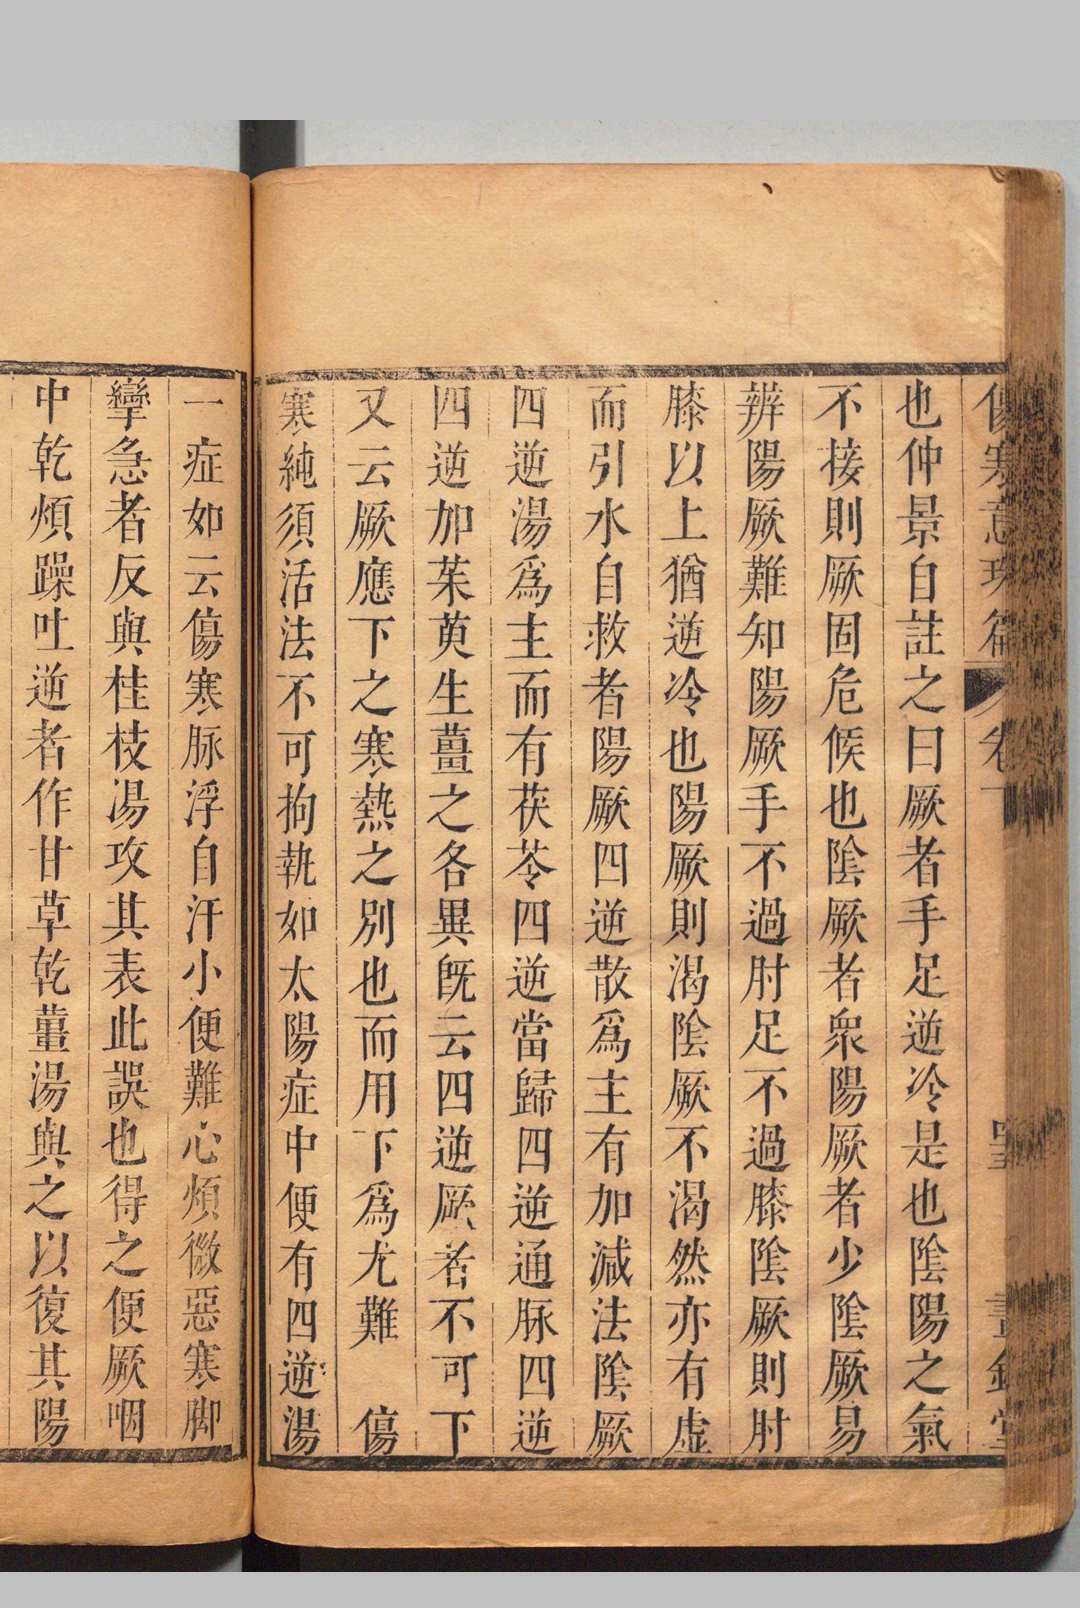 傷寒意珠篇 卷
也仲景自註之曰厥者手足逆冷是也陰陽之氣
不接則厥固危候也陰厥者衆陽厥者少陰厥易
辨陽厥難知陽厥手不過肘足不過膝陰厥則肘
膝以上猶逆冷也陽厥則渴陰厥不渴然亦有虛
而引水自救者陽厥四逆散爲主有加減法陰厥
四逆湯爲主而有茯苓四逆當歸四逆通脉四逆
四逆加茱萸生薑之各異既云四逆厥者不可下
又云厥應下之寒熱之別也而用下爲尤難　傷
寒純須活法不可拘執如太陽症中便有四逆湯
一症如云傷寒脉浮自汗小便難心煩微惡寒脚
攣急者反與桂枝湯攻其表此誤也得之便厥咽
中乾煩躁吐逆者作甘草乾薑湯與之以復其陽